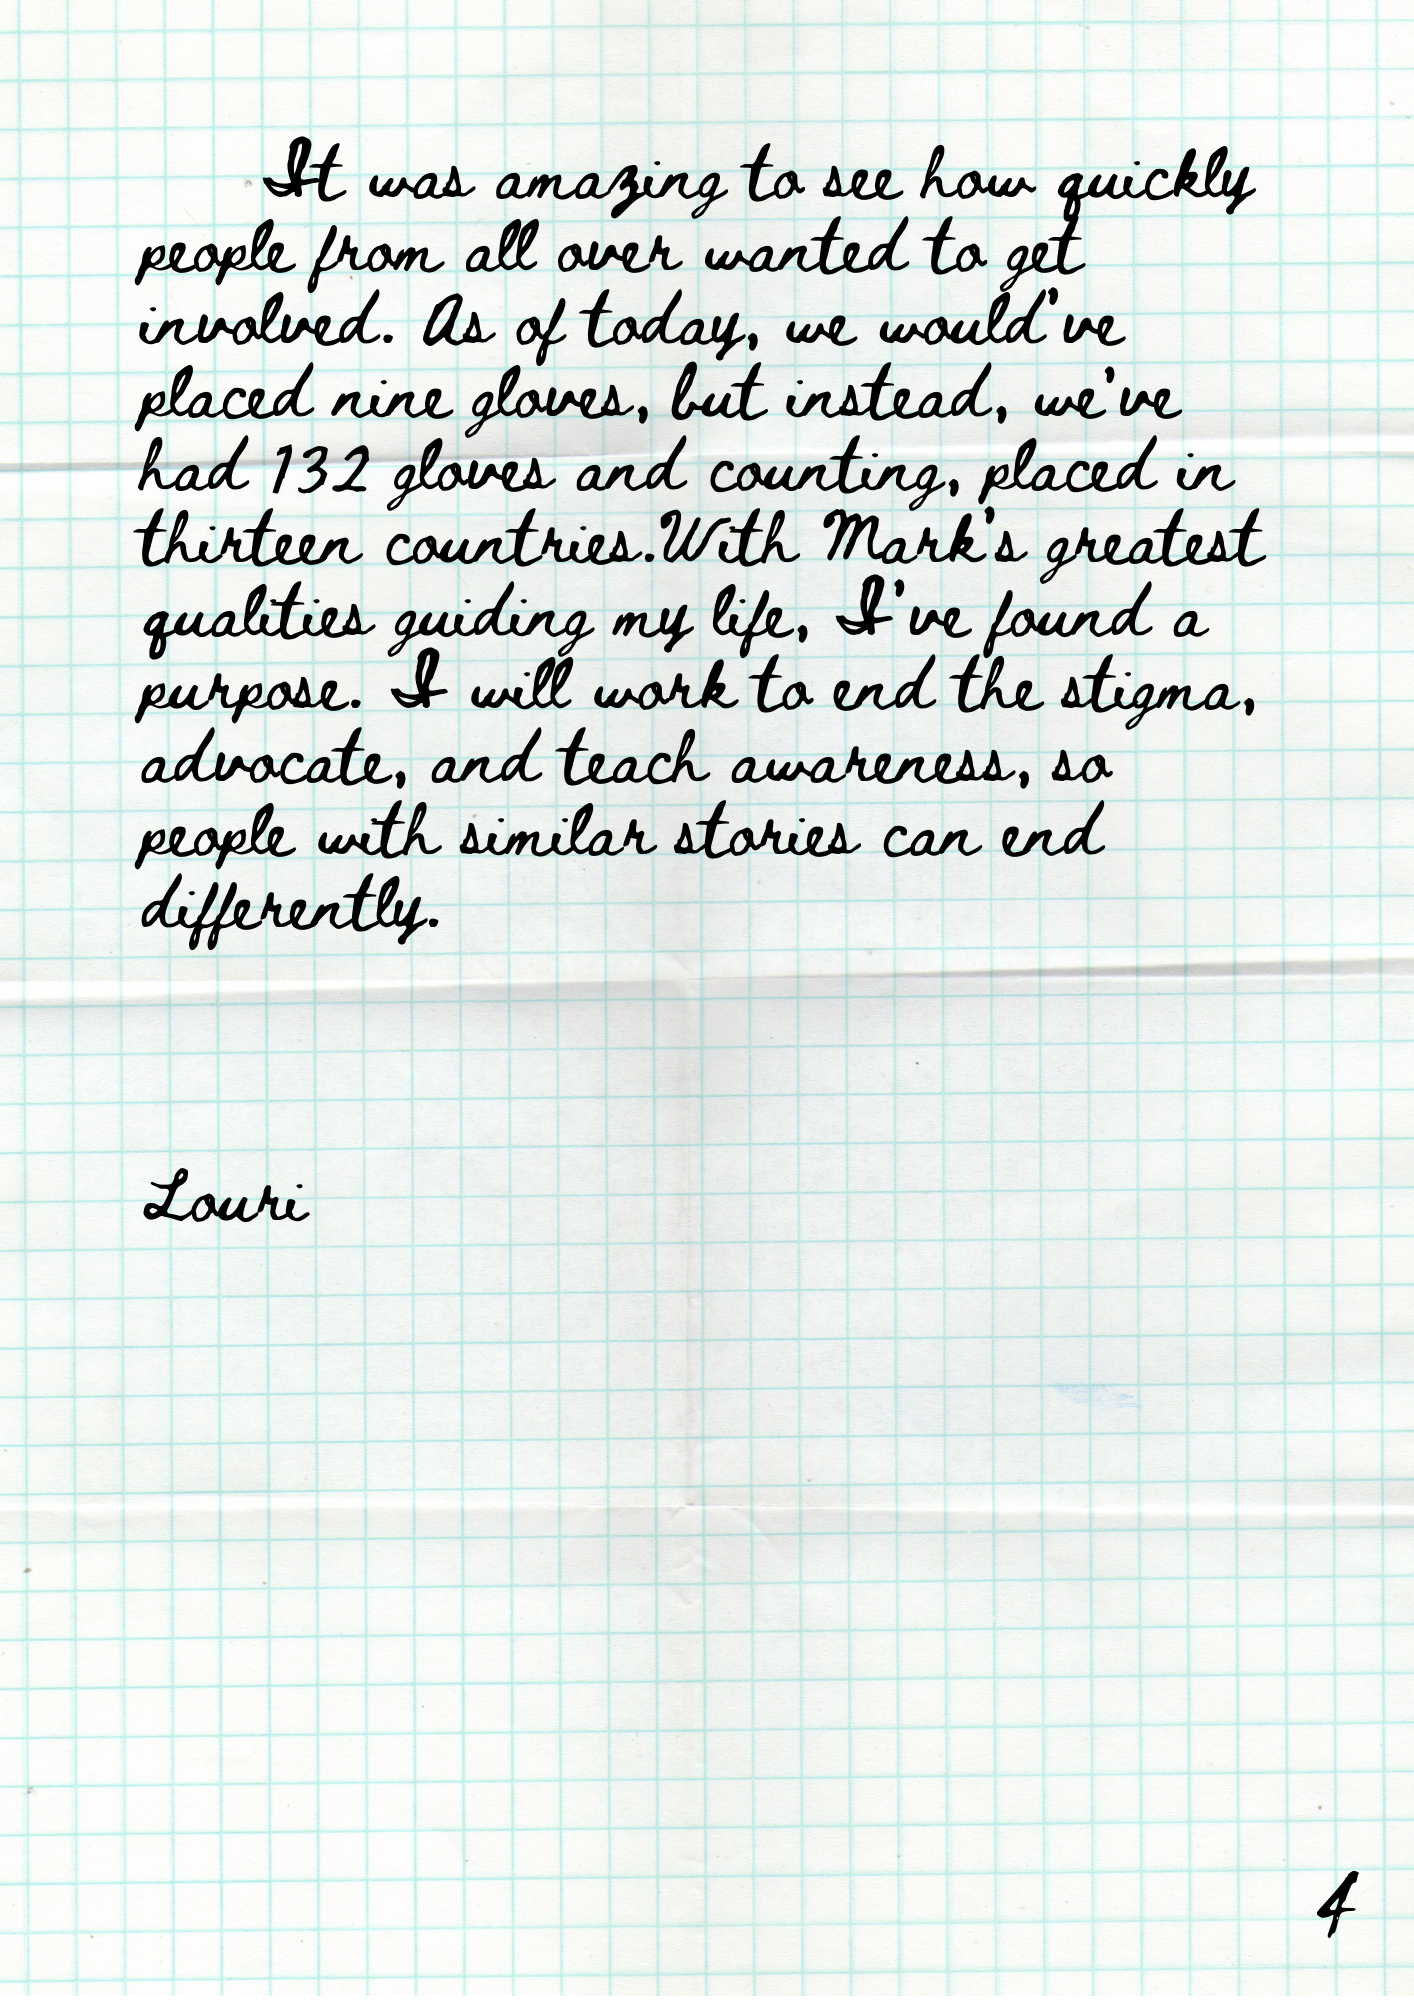 It was amazing to see how quickly
people from all over wanted to get
involved. As of today, we would've
placed nine gloves, but instead, we've
had 132 gloves and counting, placed in
thirteen countries.With Mark's greatest
qualities guiding my life, I've found a
purpose. I will work to end the stigma,
advocate, and teach awareness, so
people with similar stories can end
differently.
Louri
4